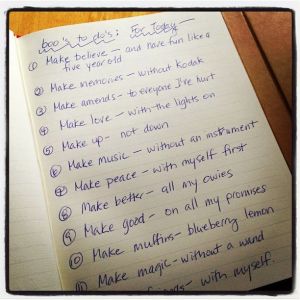 boo's to do's: For Today —
① Make believe — and have fun like a
five year old
② Make memories — without kodak
③ Make amends — to everyone I've hurt
④ Make love — with the lights on
⑤ Make up — not down
⑥ Make music — without an instrument
⑦ Make peace — with myself first
⑧ Make better — all my owies
⑨ Make good — on all my promises
⑩ Make muffins — blueberry lemon
⑪ Make magic — without a wand
friends — with myself.